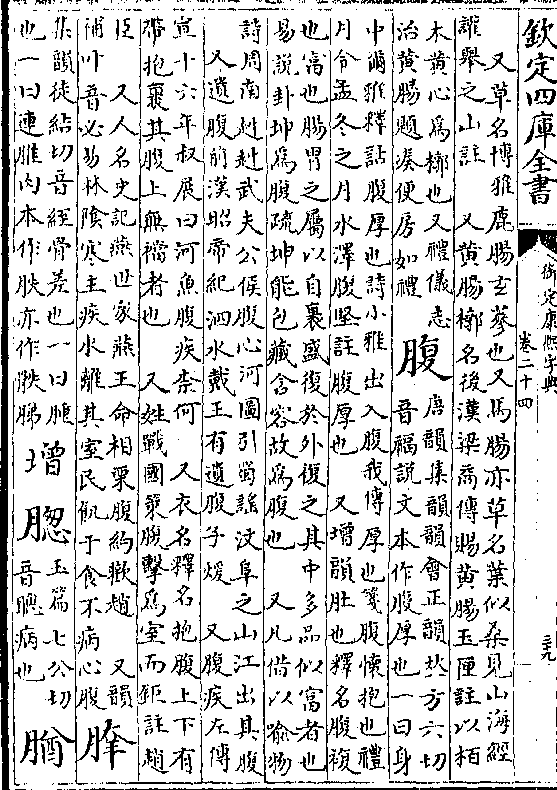 欽定四庫全書
御定康熙字典
卷二十四
三九
又草名博雅鹿腸玄蔘也又馬腸亦草名葉似桑見山海經
讙舉之山註 又黃腸槨名後漢梁商傳賜黃腸玉匣註以栢
木黃心爲槨也又禮儀志
治黃腸題湊便房如禮
腹
唐韻集韻韻會正韻𠀤方六切
音福說文本作腹厚也一曰身
中爾雅釋詁腹厚也詩小雅出入腹我傳厚也箋腹懷抱也禮
月令孟冬之月水澤腹堅註腹厚也 又增韻肚也釋名腹複
也富也腸胃之屬以自裹盛復於外復之其中多品似富者也
易說卦坤爲腹疏坤能包藏含容故爲腹也 又凡借以喻物
詩周南赳赳武夫公侯腹心河圖引蜀謠汶阜之山江出其腹
又遺腹前漢昭帝紀泗水戴王有遺腹子煖 又腹疾左傳
宣十六年叔展曰河魚腹疾柰何 又衣名釋名抱腹上下有
帶抱裹其腹上無襠者也 又姓戰國策腹擊爲室而鉅註趙
臣 又人名史記燕世家燕王命相栗腹約歡趙 又韻
補叶音必易林陰寒主疾水離其室民飢于食不病心腹
䏲
集韻徒結切音絰骨差也一曰腫
也一曰連脽肉本作胅亦作䏲䏲
增
䐋
玉篇七公切
音聰病也
䐗